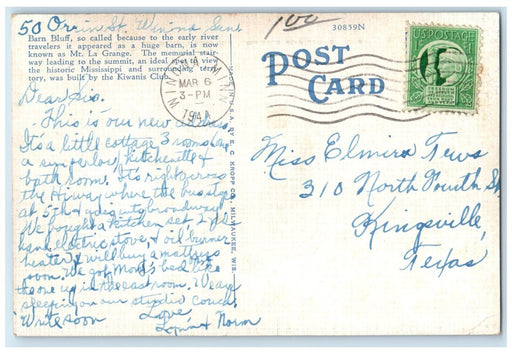 50 Orrin St. Winona
1.00
30859N
Barn Bluff, so called because to the early river
travelers it appeared as a huge barn, is now
known as Mt. La Grange. The memorial stair-
way leading to the summit, an ideal spot to view
the historic Mississippi and surrounding terri-
tory, was built by the Kiwanis Club.
POST
CARD
U.S. POSTAGE
WINONA MINN
MAR 6
3-PM
Dear Sis.
This is our new
It's a little cottage 3 rooms
a kitchenette &
bath room. It's right across
the Hiway where the bus stops
at 5th &
We bought a kitchen set, 2
electric stove, & oil burner
heater & will buy a mattress
soon. We got Mom's bed like
the one up in the east room. We are
sleeping on our studio couch.
Write soon Love,
& Norm
E. C. KROPP CO., MILWAUKEE, WIS.
Miss Elmira Tews
310 North Fourth St
Kingsville,
Texas